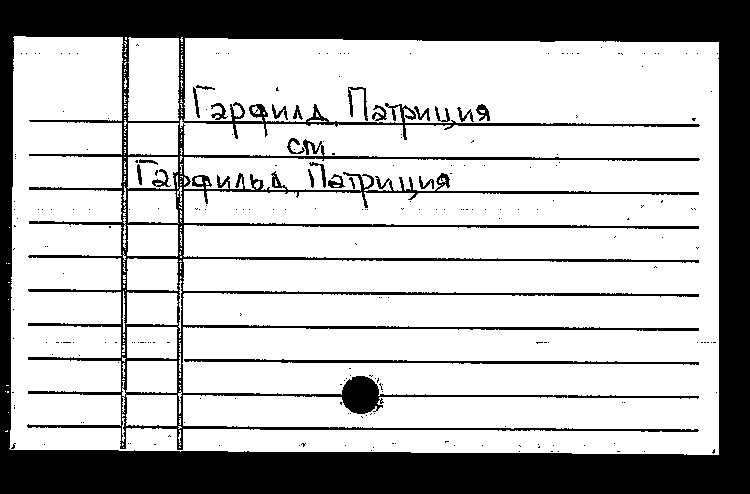 Гарфилд, Патриция
см.
Гарфильд, Патриция